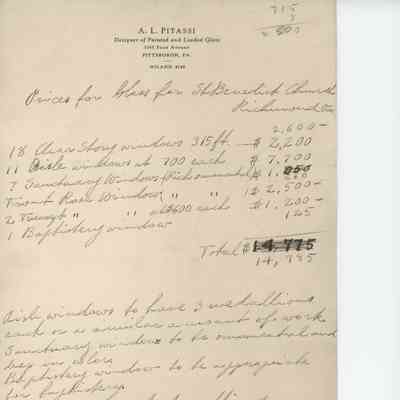 715
A. L. PITASSI
Designer of Painted and Leaded Glass
PITTSBURGH, PA.
Prices for Glass for St Benedict Church
Richmond Va
2,600-
18 Clear Story windows 315 ft. $ 2,200
11 Aisle windows at 700 each $ 7,700
7 Sanctuary Windows (Rich ornamental) $ 1,
Front Rose Window " " 1 $ 2,500-
2 Transept " " at $600 each $ 1,200-
1 Baptistery window 125
Total $ 14,775
14,785
Aisle windows to have 3 medallions
each or a similar amount of work
Sanctuary windows to be ornamental and
deep in colors
Baptistery window to be appropriate
for baptistery